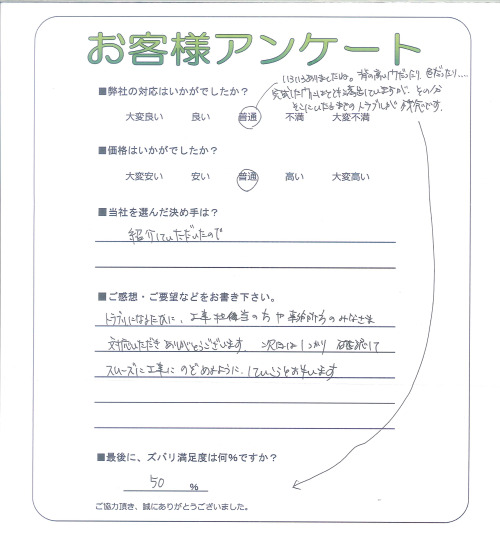 お客様アンケート
いろいろありましたね。扉の高い穴だったり 色だったり....
■弊社の対応はいかがでしたか？
完成した穴にはとても満足していますが、その分
そこにいたるまでのトラブルが残念です。
大変良い 良い 普通 不満 大変不満
■価格はいかがでしたか？
大変安い 安い 普通 高い 大変高い
■当社を選んだ決め手は？
紹介していただいたので
■ご感想・ご要望などをお書き下さい。
トラブルになるたびに、工事担当の方や事務所方のみなさま
対応いただきありがとうございます。次回はしっかり確認して
スムーズに工事にのぞめるように、していこうとおもいます
■最後に、ズバリ満足度は何%ですか？
50 %
ご協力頂き、誠にありがとうございました。